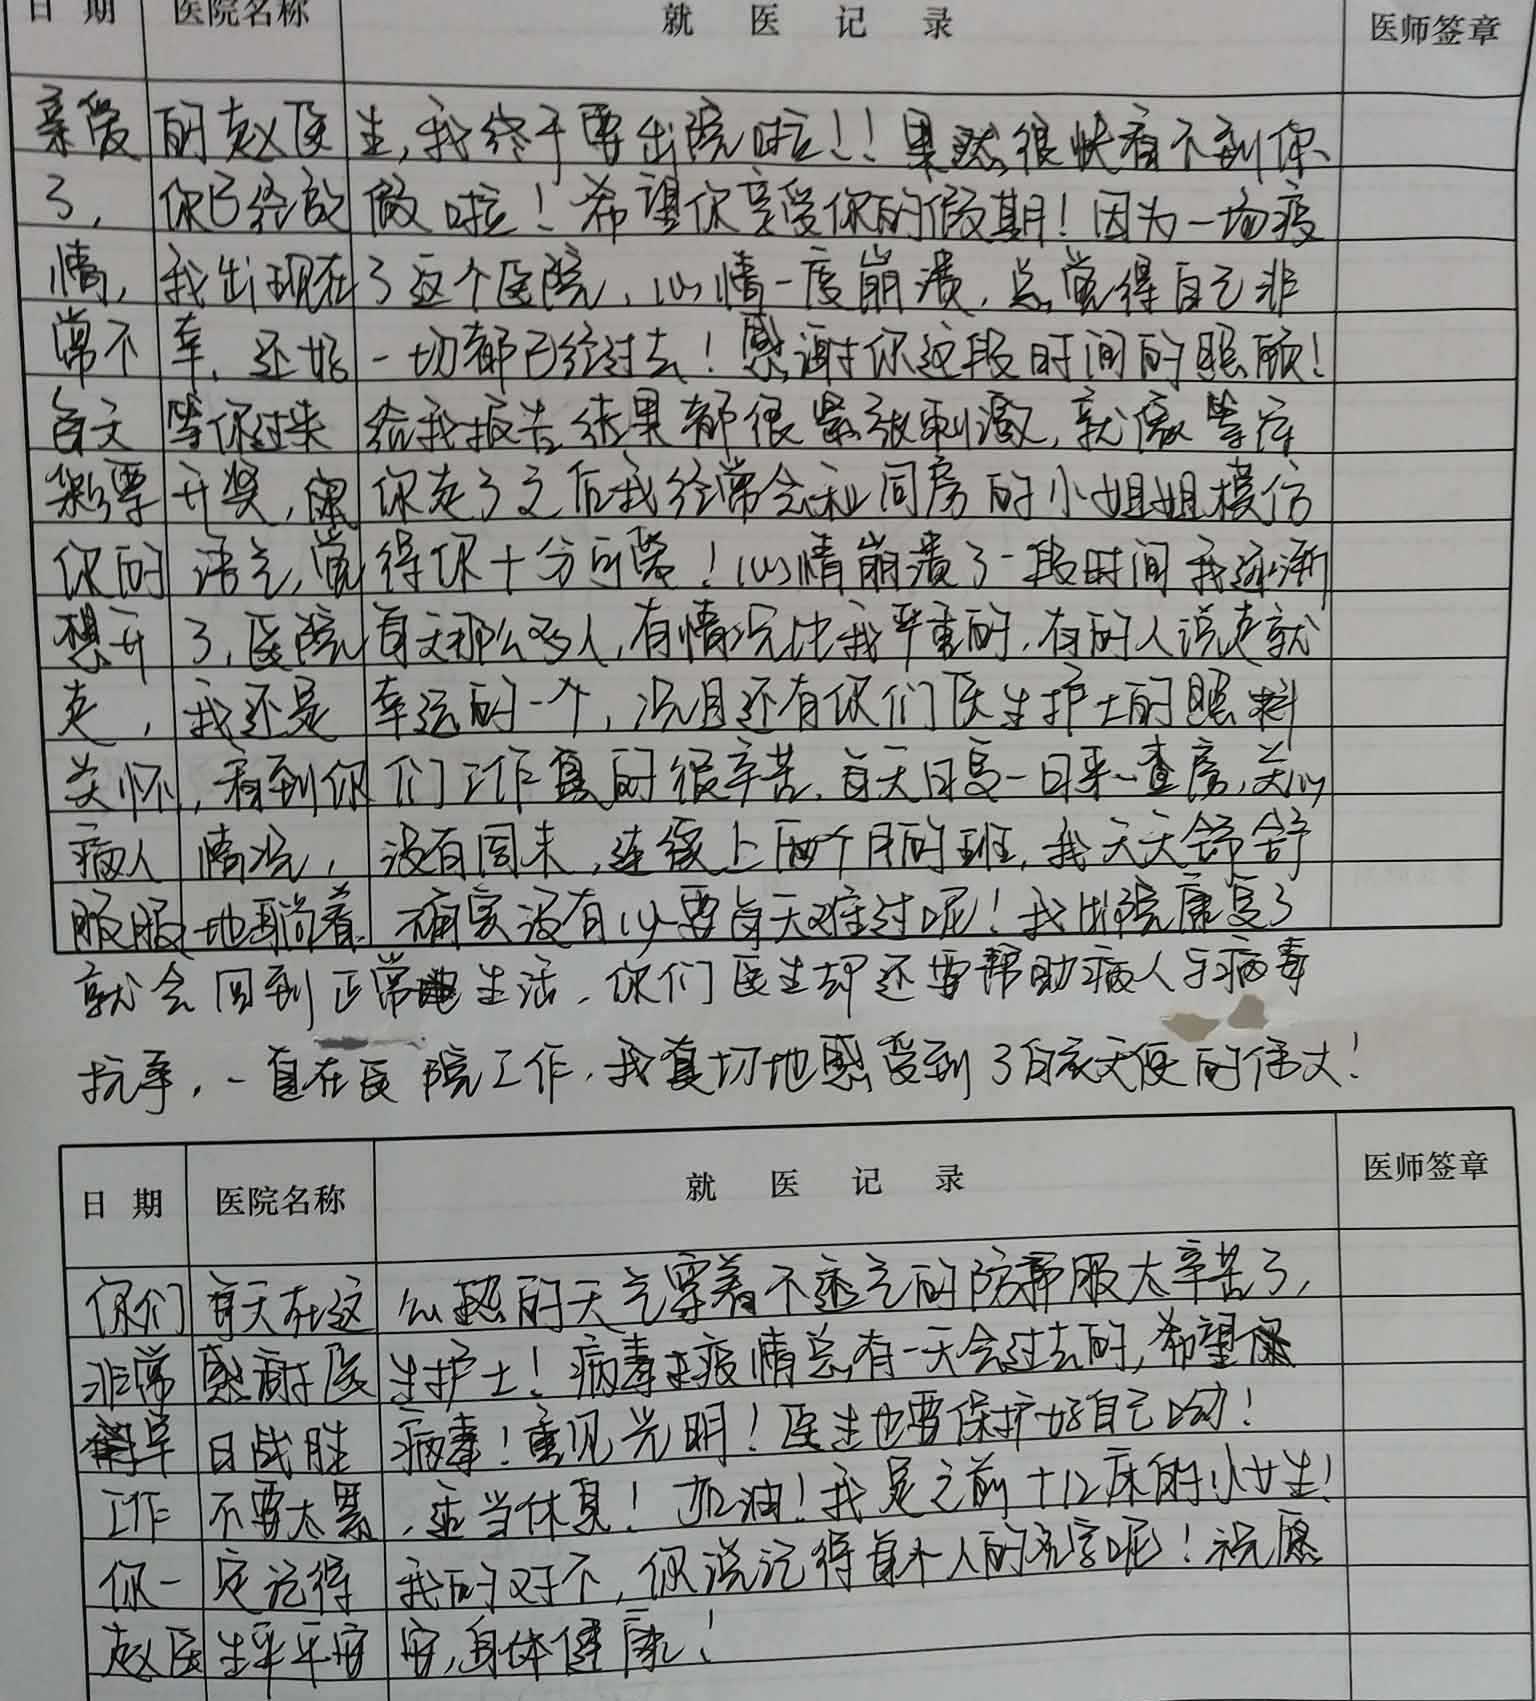 日 期 医院名称 就 医 记 录 医师签章
亲爱的赵医生,我终于要出院啦!!果然很快看不到你
了,你已经放假啦!希望你享受你的假期!因为一场疫
情,我出现在了这个医院,心情一度崩溃,总觉得自己非
常不幸,还好一切都已经过去!感谢你这段时间的照顾!
每天等你过来给我报告结果都很紧张刺激,就像等待
彩票开奖,你走了之后我经常会和同房的小姐姐模仿
你的语气,觉得你十分可爱!心情崩溃了一段时间我逐渐
想开了,医院每天那么多人,有情况比我严重的,有的人说走就
走,我还是幸运的一个,况且还有你们医生护士的照料
关怀,看到你们工作真的很辛苦,每天日复一日来查房,关心
病人情况,没有周末,连续上两个月的班,我天天舒舒
服服地躺着,确实没有必要每天难过呢!我出院康复了
就会回到正常生活,你们医生却还要帮助病人与病毒
抗争,一直在医院工作,我真切地感受到了白衣天使的伟大!
日 期 医院名称 就 医 记 录 医师签章
你们每天在这么热的天气穿着不透气的防护服太辛苦了,
非常感谢医生护士!病毒疫情总有一天会过去的,希望
早日战胜病毒!重见光明!医生也要保护好自己呦!
工作不要太累,适当休息!加油!我是之前+12床的小女生!
你一定记得我的对不,你说记得每个人的名字呢!祝愿
赵医生平平安安,身体健康!